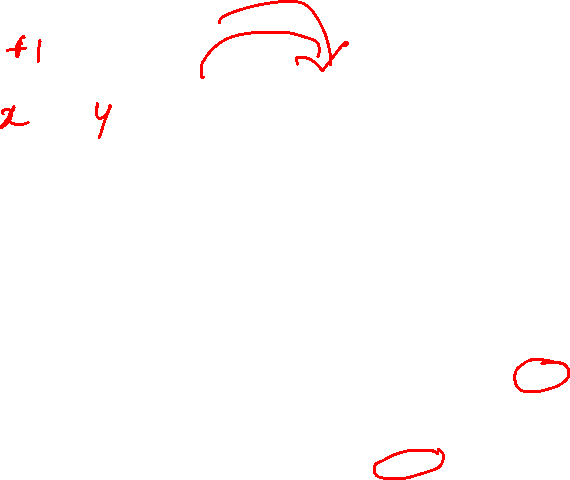 +1
x y